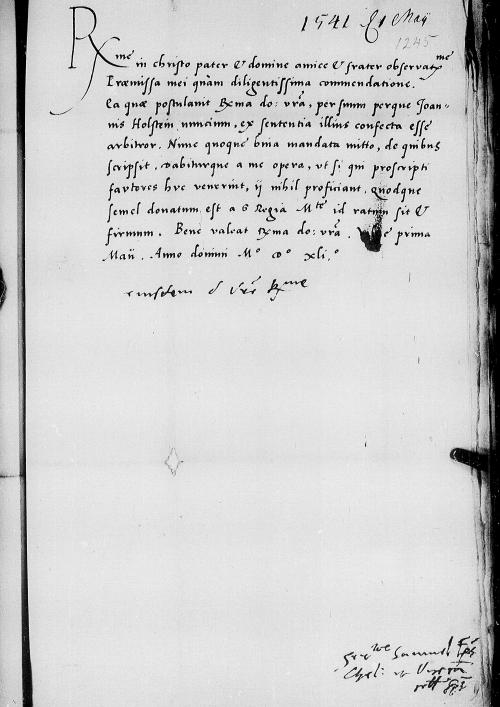 1541 1 Maij
1245
Rxme in christo pater & domine amice & frater observatme
Praemissa mei quàm diligentissima commendatione.
Ea quae postulavit Rxma do: vra, per suum perque Joan-
nis Holstein nuncium, ex sententia illius confecta esse
arbitror. Nunc quoque omnia mandata mitto, de quibus
scripsit, dabiturque a me opera, ut si qui proscripti
fautores huc venerint, ij nihil proficiant, quodque
semel donatum est a S Regia Mte id ratum sit &
firmum. Bene valeat Rxma do: vra. prima
Maij. Anno domini Mo Do xlio
eiusdem d Vre Rxme
Samuel